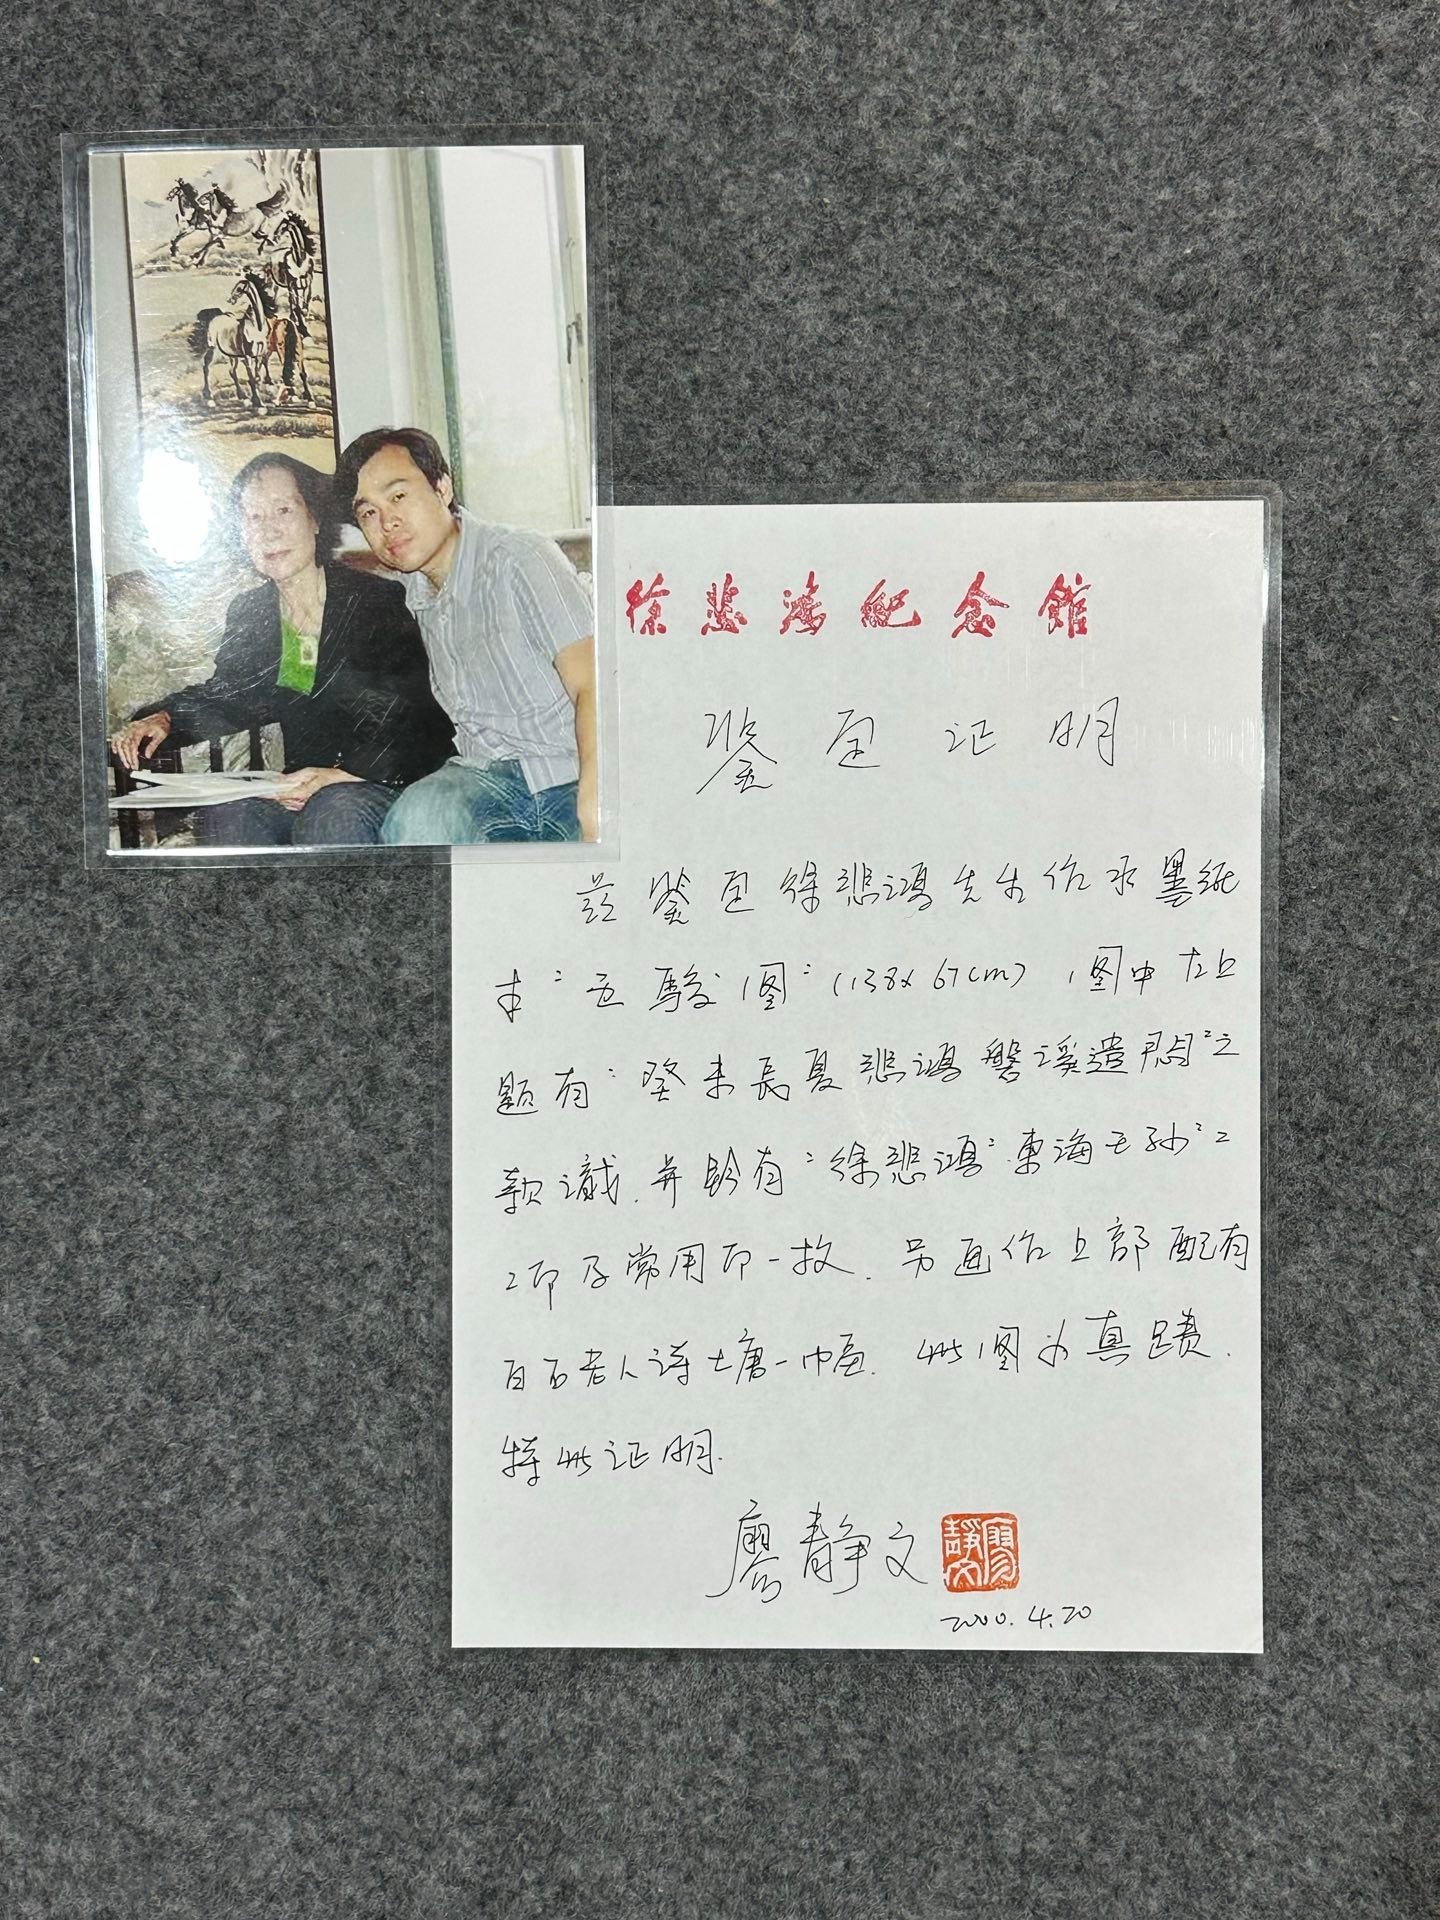 徐悲鸿纪念馆
鉴定证明
兹鉴定徐悲鸿先生作水墨纸
本“五骏图”(138x67cm),图中右上
题有“癸未長夏悲鸿磐溪遣闷”之
款識.并钤有“徐悲鸿”“東海王孙”二
二印及常用印一枚.另画作上部配有
白石老人诗塘一幅.此图为真蹟.
特此证明.
廖静文
廖靜文
2000.4.20